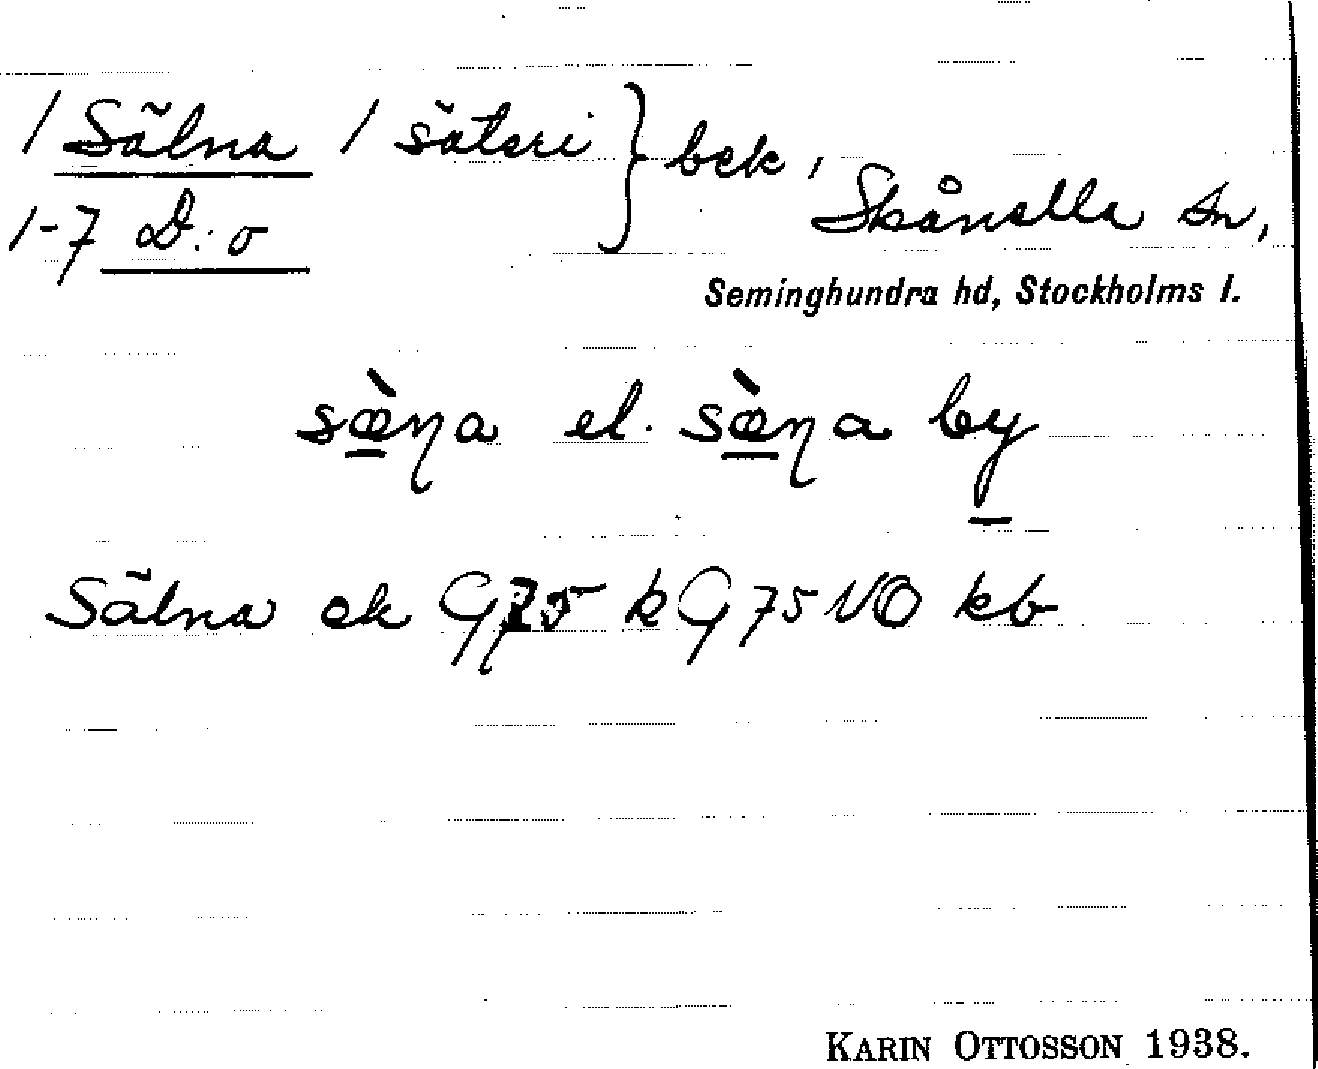 1 Sälna 1 säteri } bek,
1-7 D:o
Skånella sn,
Seminghundra hd, Stockholms l.
sæ̀ɳa el. sæ̀ɳa by
Sälna ek G 75 k G 75 NO kb
KARIN OTTOSSON 1938.